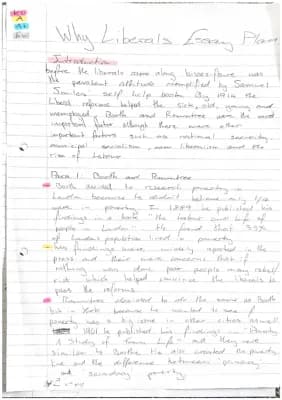 Why Liberals Essay Plan
Introduction
Before the liberals came along laissez-faire was
the prevalent attitude exemplified by Samuel
Smiles' self help book. By 1914 the
liberal reforms helped the sick, old, young and
unemployed. Booth and Rowntree were the most
important factor although there were other
important factors such as national security,
municipal socialism, new liberalism and the
rise of Labour.
Para 1: Booth and Rowntree
Booth decided to research poverty in
London because he didn't believe only 1/4
were in poverty. In 1889 he published his
findings in a book "the Labour and Life of
people in London" He found that 35%
of London's population lived in poverty
His findings were widely reported in the
press and there were concerns that if
nothing was done poor people may rebel/
riot which helped convince the liberals to
pass the reforms.
Rowntree decided to do the same as Booth
but in York because he wanted to see if
poverty was big in other cities as well
1901 he published his findings in "Poverty
A Study of Town Life" and they were
similar to Booths. He also created the poverty
line and the difference between "primary
and secondary poverty